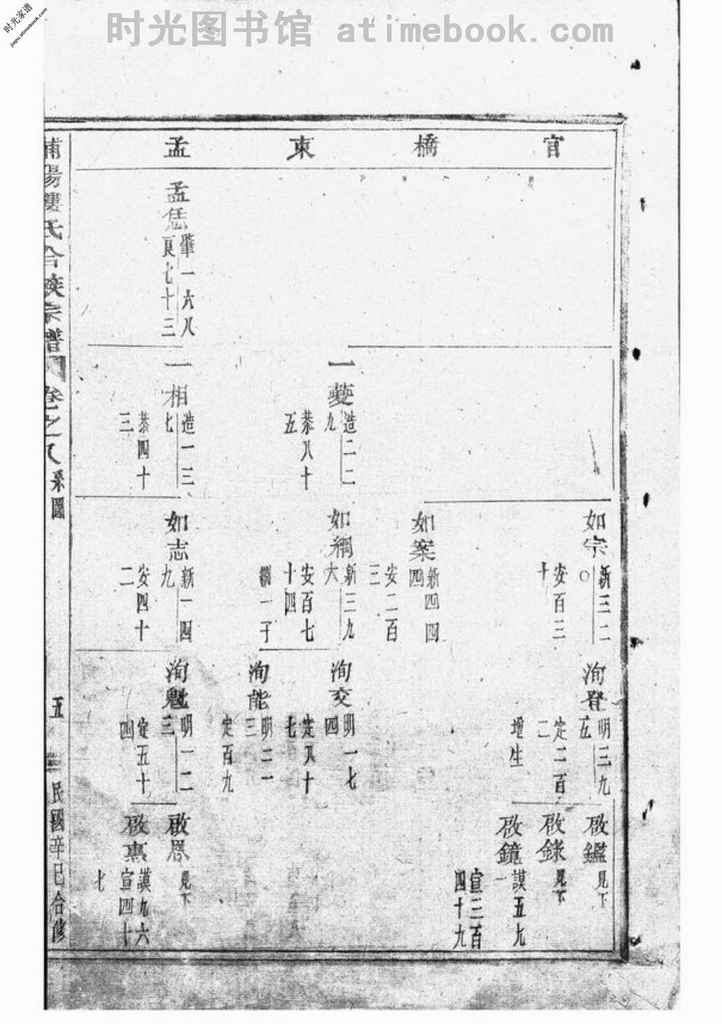 时光图书馆 atimebook.com
时光家谱
jiapu.atimebook.com
官橋東孟
孟恁
肇一六八
良七十三
一夔
造二二九
恭八十五
一相
造一三七
恭四十三
如宗
新三二〇
安百三十
如案
新四四四
安二百三
如綱
新三九六
安百七十四
繼一子
如志
新一四九
安四十二
洵登
明三九五
定二百二
增生
洵交
明一七四
定八十七
洵能
明二一三
定百九
洵魁
明一二三
定五十四
啟鑑
見下
啟錄
見下
啟鏡
謨五九一
宣三百四十九
啟恩
見下
啟惠
謨九六七
宣四十
氏合族宗譜
卷之八
系圖
五
民國辛巳合修